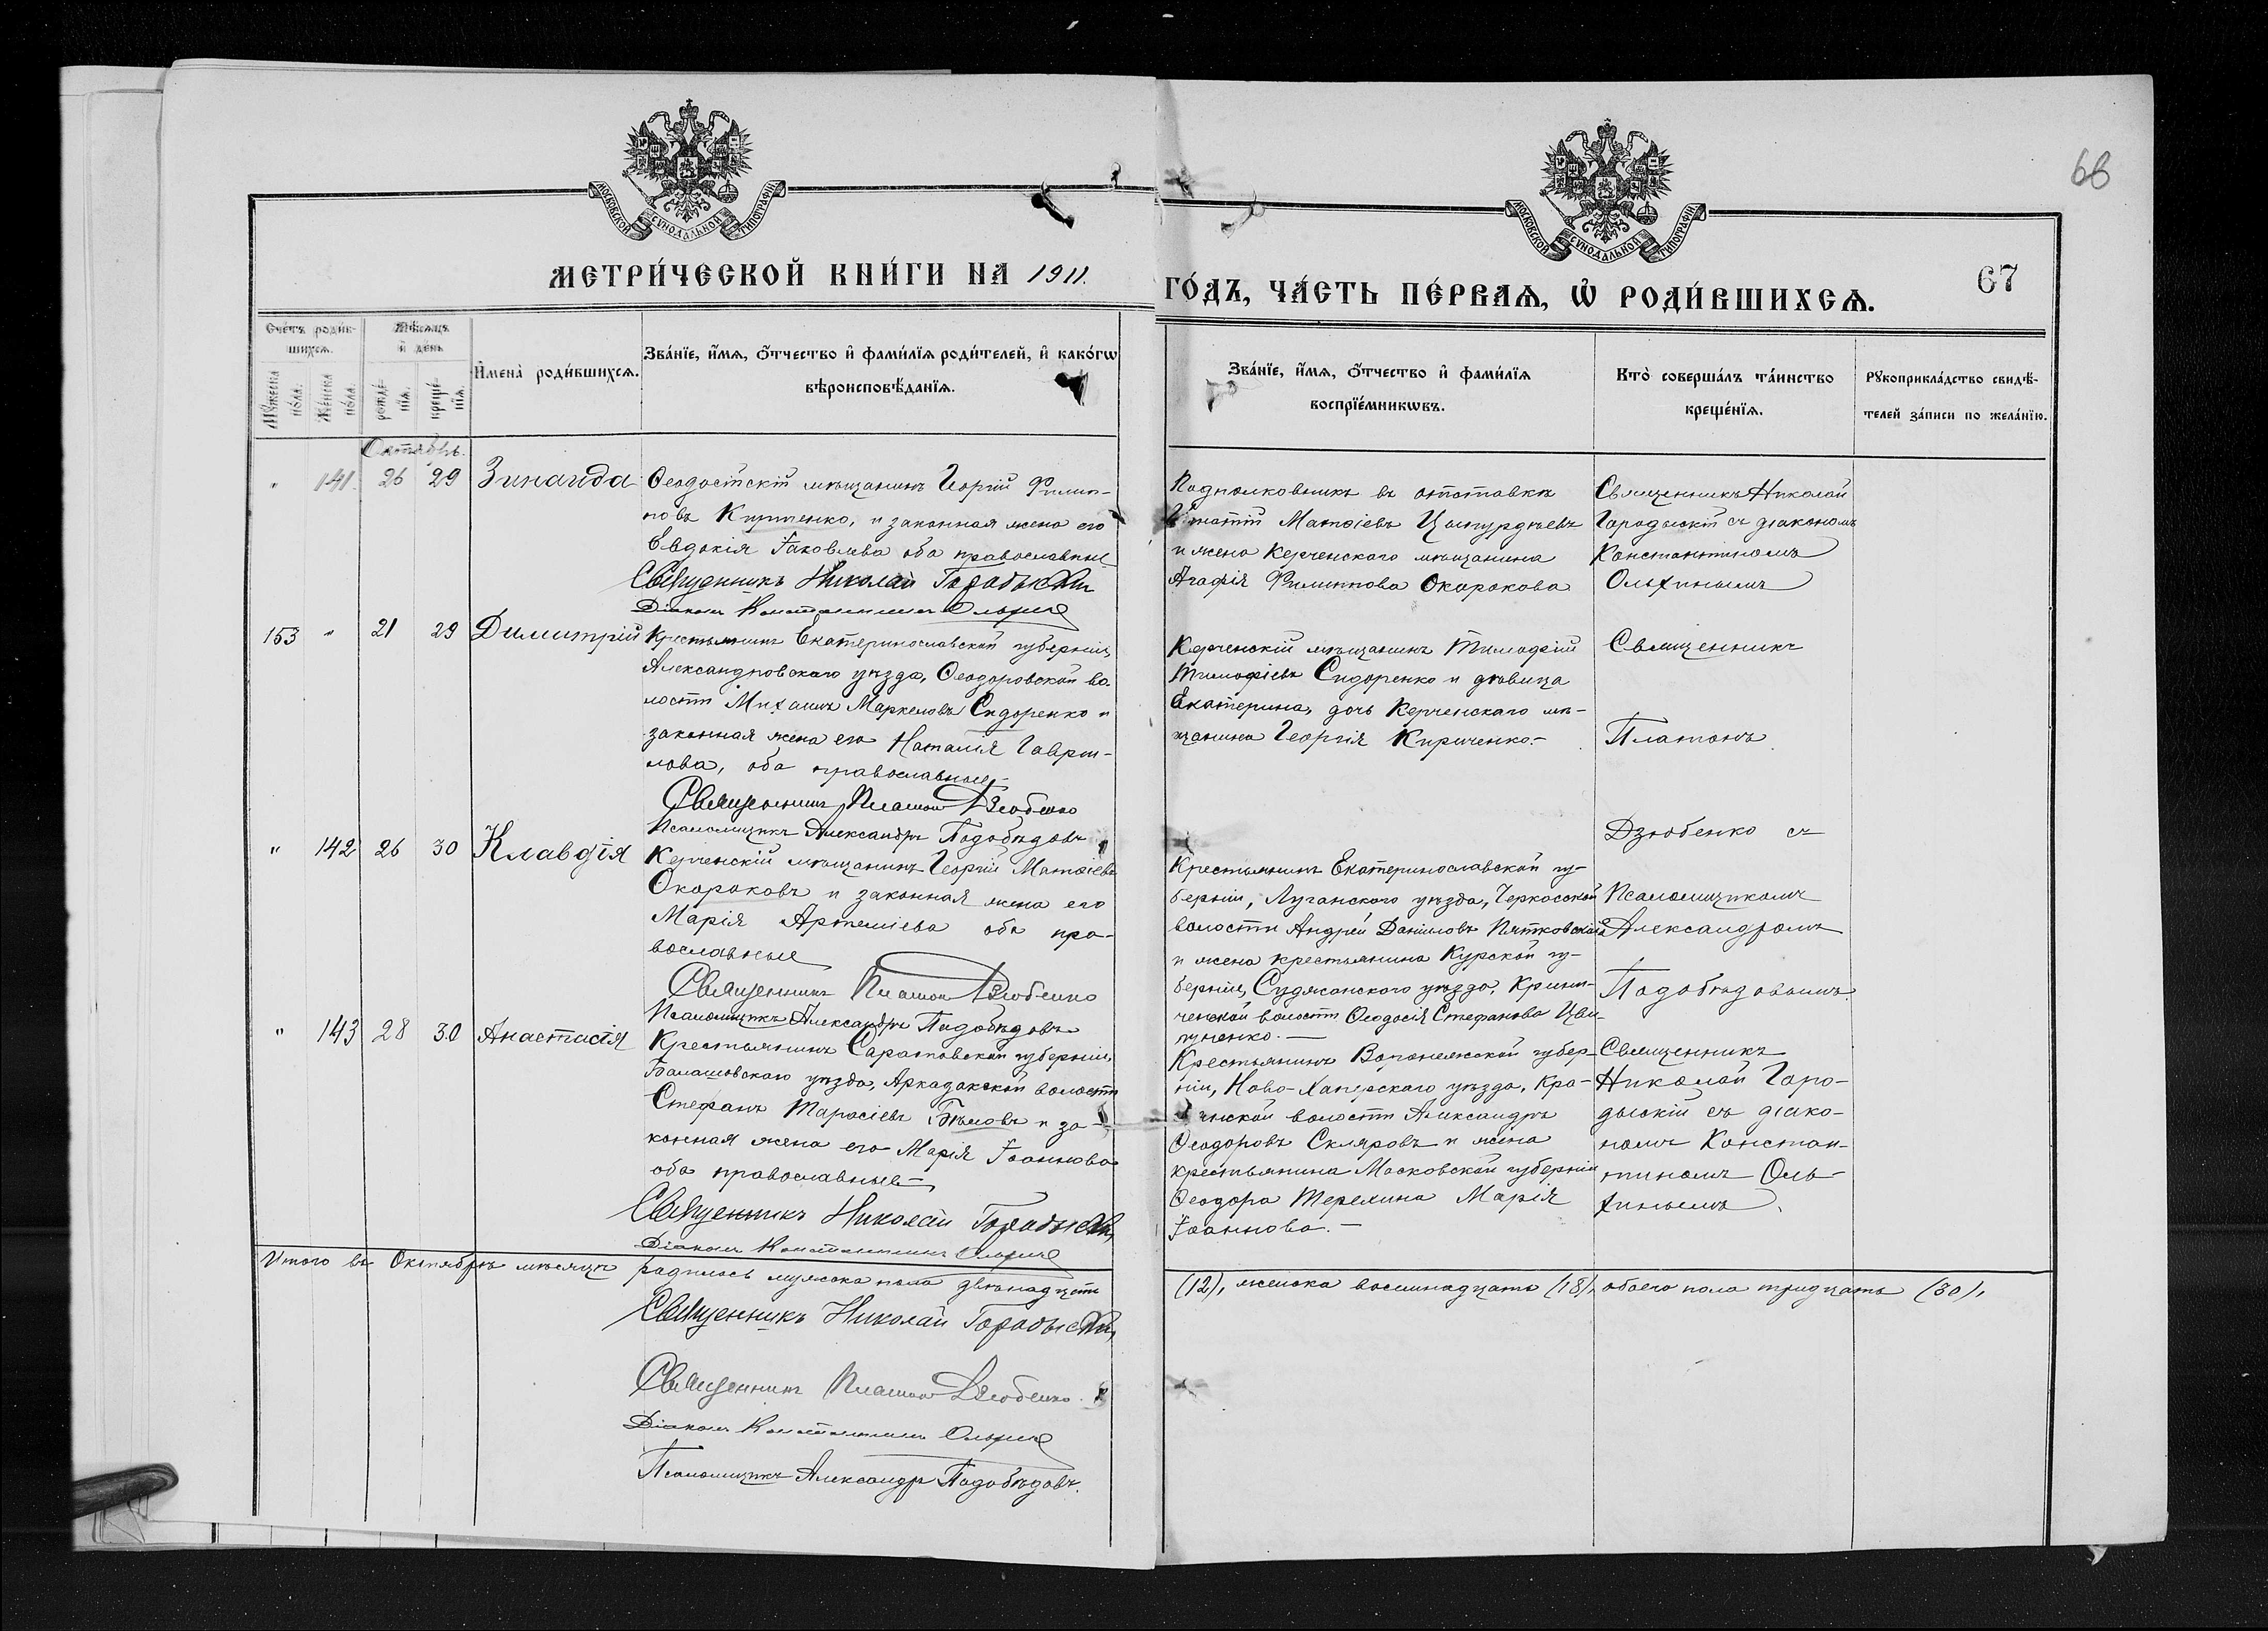 68
МОСКОВСКОЙ СУНОДАЛЬНОЙ ТИПОГРАФІИ
МОСКОВСКОЙ СУНОДАЛЬНОЙ ТИПОГРАФІИ
МЕТРИ́ЧЕСКОЙ КНИ́ГИ НА 1911.
ГО́ДЪ, ЧА́СТЬ ПЕ́РВАѦ, Ѡ҆ РОДИ́ВШИХСѦ.
67
Сче́тъ роди́в-
шихсѧ.
Мѣ́сѧцъ
и҆ де́нь
Мꙋ́жеска по́ла.
Же́нска по́ла.
рожде́-
нїѧ.
креще́-
нїѧ.
И҆мена̀ роди́вшихсѧ.
Зва́нїе, и҆́мѧ, ѻ҆́тчество и҆ фами́лїѧ роди́телей, и҆ како́гѡ
вѣроисповѣ́данїѧ.
Зва́нїе, и҆́мѧ, ѻ҆́тчество и҆ фами́лїѧ
воспрїе́мникѡвъ.
Кто̀ соверша́лъ та́инство
креще́нїѧ.
Рꙋкоприкла́дство свидѣ́-
телей за́писи по жела́нїю.
Октябрь.
" 141. 26 29 Зинаида
Ѳеодосійскій мѣщанинъ Георгій Филип-
повъ Кириченко, и законная жена его
Евдокія Іаковлева оба православные
Священникъ Николай Городыскій
Діаконъ Константинъ Ольхинъ
Подполковникъ въ отставкѣ
Матѳіевъ
и жена Керченскаго мѣщанина
Агафія Филиппова Окорокова
Священникъ Николай
Городыскій съ діакономъ
Константиномъ
Ольхинымъ
153 " 21 29 Димитрій
Крестьянинъ Екатеринославской губерніи,
Александровскаго уѣзда, Ѳеодоровской во-
лости Михаилъ Маркеловъ Сидоренко и
законная жена его Наталія Гаврии-
лова, оба православные
Священникъ Платонъ Дзюбенко
Псаломщикъ Александръ Подобѣдовъ
Керченскій мѣщанинъ Тимофій
Тимофіевъ Сидоренко и дѣвица
Екатерина, дочь Керченскаго мѣ-
щанина Георгія Кириченко.-
Священникъ
Платонъ
Дзюбенко съ
Псаломщикомъ
Александромъ
Подобѣдовымъ.
" 142 26 30 Клавдія
Керченскій мѣщанинъ Георгій Матѳіевъ
Окороковъ и законная жена его
Марія Артеміева оба пра-
вославные
Священникъ Платонъ Дзюбенко
Псаломщикъ Александръ Подобѣдовъ
Крестьянинъ Екатеринославской гу-
берніи, Луганскаго уѣзда, Черкасской
волости Андрей Даніиловъ Пятковскій
и жена крестьянина Курской гу-
берніи, Суджанскаго уѣзда,
волости Ѳеодосія Стефанова
" 143 28 30 Анастасія
Крестьянинъ Саратовской губерніи,
Балашовскаго уѣзда, Аркадакской волости
Стефанъ Тарасіевъ Бѣловъ и за-
конная жена его Марія Іоаннова
оба православные
Священникъ Николай Городыскій
Діаконъ Константинъ Ольхинъ
Крестьянинъ Воронежской губер-
ніи, Ново-Хаперскаго уѣзда,
волости Александръ
Ѳеодоровъ Скляровъ и жена
крестьянина Московской губерніи
Ѳеодора Терехина Марія
Іоаннова.-
Священникъ
Николай Горо-
дыскій съ діако-
номъ Констан-
тиномъ Оль-
хинымъ.
Итого въ Октябрѣ мѣсяцѣ родилось мужска пола двѣнадцать
(12), женска восемнадцать (18), обоего пола тридцать (30),
Священникъ Николай Городыскій
Священникъ Платонъ Дзюбенко.
Діаконъ Константинъ Ольхинъ
Псаломщикъ Александръ Подобѣдовъ.